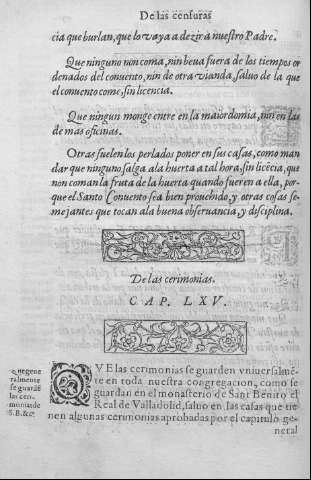 De las censuras
cia que burlan, que lo vaya a dezir a nuestro Padre.
Que ninguno non coma, nin beua fuera de los tiempos or
denados del conuento, nin de otra vianda, saluo de la que
el conuento come, sin licencia.
Que ningun monge entre en la maiordomia, nin en las
de mas oficinas.
Otras suelen los perlados poner en sus casas, como man
dar que ninguno salga a la huerta a tal hora, sin licẽcia, que
non coman la fruta de la huerta quando fueren a ella, por-
que el Santo Conuento sea bien prouehido, y otras cosas se-
mejantes que tocan a la buena obseruancia, y disciplina.
De las cerimonias.
CAP. LXV.
Q VE las cerimonias se guarden vniuersalmẽ-
te en toda nuestra congregacion, como se
guardan en el monasterio de Sant Benito el
Real de Valladolid, saluo en las casas que tie-
nen algunas cerimonias aprobadas por el capitulo ge-
neral
Q̃ negene
ralmente
se guardẽ
las ceri-
monias de
S. B. &c.